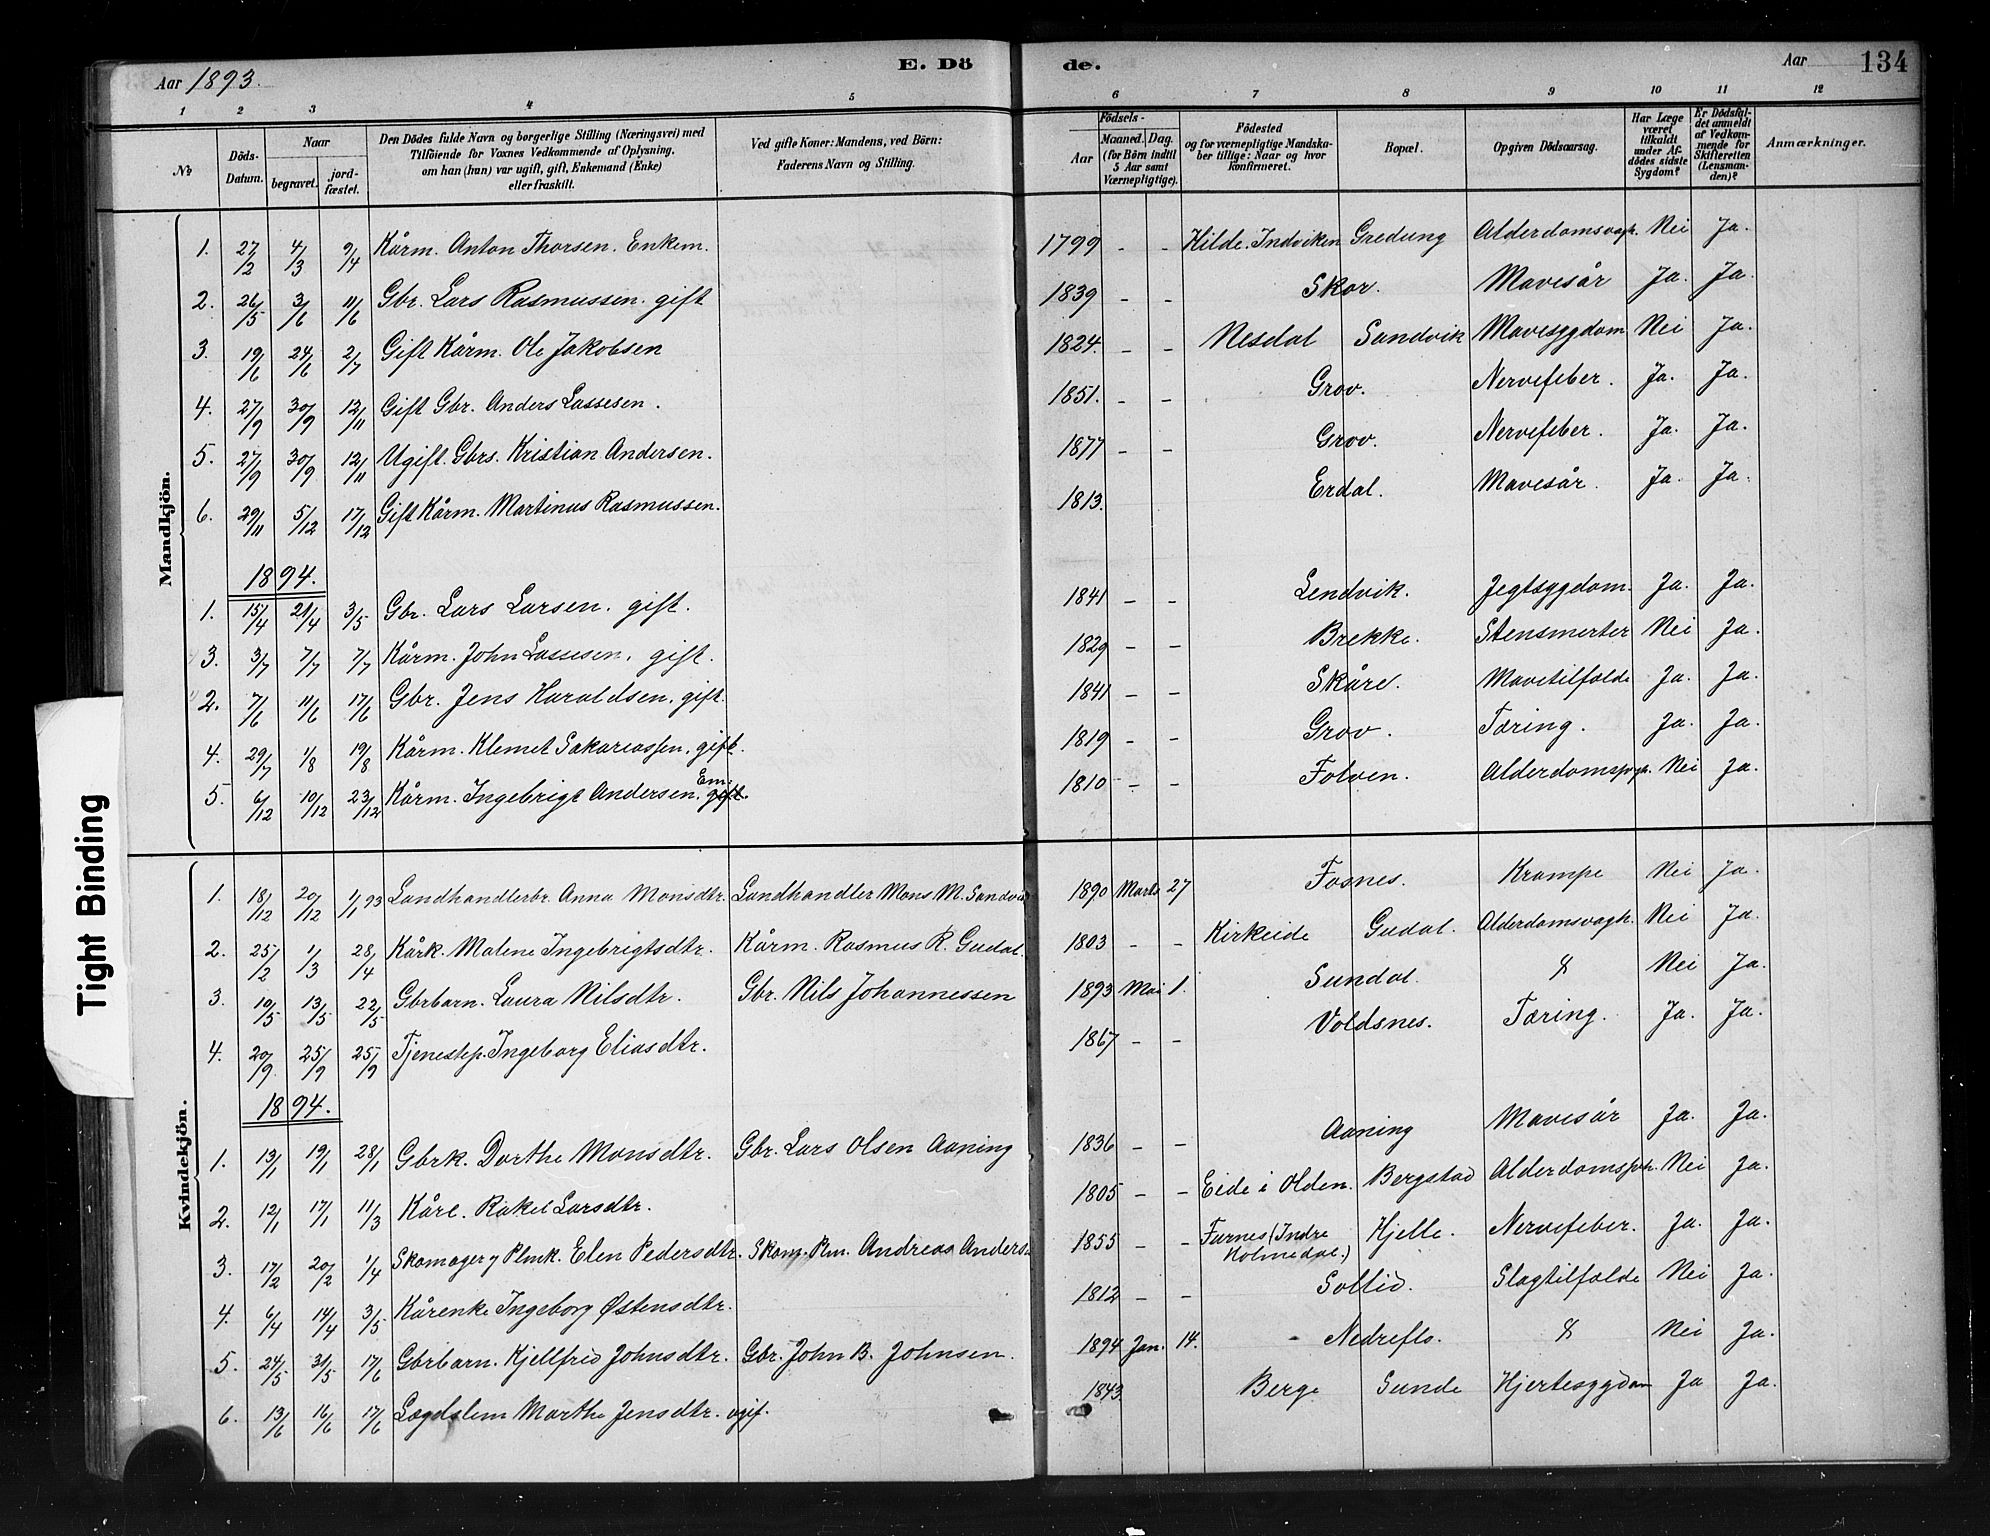 Aar 1893. E. Dö de. Aar 134
1 2 3 4 5 6 7 8 9 10 11 12
№ Döds-Datum. Naar begravet. jord-fæstet. Den Dödes fulde Navn og borgerlige Stilling (Næringsvei) med Tilföiende for Voxnes Vedkommende af Oplysning, om han (hun) var ugift, gift, Enkemand (Enke) eller fraskilt. Ved gifte Koner: Mandens, ved Börn: Faderens Navn og Stilling. Födsels- Aar Maaned. Dag. (for Börn indtil 5 Aar samt Værnepligtige). Födested og for værnepligtige Mandskaber tillige: Naar og hvor konfirmeret. Bopæl. Opgiven Dödsaarsag. Har Læge været tilkaldt under Afdödes sidste Sygdom? Er Dödsfaldet anmeldt af Vedkommende for Skifteretten (Lensmanden)? Anmærkninger.
Mandkjön.
1. 27/2 4/3 9/4 Kårm. Anton Thorsen. Enkem. 1799 - - Hilde. Indviken Gredung Alderdomsvagh. Nei Ja.
2. 26/5 3/6 11/6 Gbr. Lars Rasmussen. gift 1839 - - Skor. Mavesår Ja. Ja.
3. 19/6 24/6 2/7 Gift Kårm. Ole Jakobsen 1824. - - Nesdal Sandvik Mavesygdom Nei Ja.
4. 27/9 30/9 12/11 Gift Gbr. Anders Lassesen. 1851. - - Grov. Nervefeber. Ja. Ja.
5. 27/9 30/9 12/11 Ugift. Gbrs. Kristian Andersen. 1877 - - Grov. Nervefeber. Ja. Ja.
6. 29/11 5/12 17/12 Gift Kårm. Martinus Rasmussen. 1813. Erdal. Mavesår. Ja. Ja.
1894.
1. 15/4 21/4 3/5 Gbr. Lars Larsen. gift. 1841 - - Lendvik. Jegtsygdom. Ja. Ja.
3. 3/7 7/7 7/7 Kårm. John Lassesen. gift. 1829 - - Brekke. Stensmerter Nei Ja.
2. 7/6 11/6 17/6 Gbr. Jens Haraldsen. gift. 1841 - - Skåre. Mavetilfælde Ja. Ja.
4. 29/7 1/8 19/8 Kårm. Klemet Sakariassen. gift. 1819 - - Grov. Tæring. Ja. Ja.
5. 6/12 10/12 23/12 Kårm. Ingebrigt Andersen. Em. gift. 1810 - - Folven. Alderdomssvgh. Nei Ja.
Kvindekjön.
1. 18/12 20/12 1/1 93 Landhandlerbr. Anna Monsdtr. Landhandler Mons M. Sandvik 1890 Marts 27 Fosnes. Krampe Nei Ja.
2. 25/2 1/3 28/4 Kårk. Malene Ingebrigtsdtr. Kårm. Rasmus R. Gudal. 1803 - - Kirkeide Gudal. Alderdomsvagh. Nei Ja.
3. 10/5 13/5 22/5 Gbrbarn. Laura Nilsdtr. Gbr. Nils Johannessen 1893 Mai 1. Sundal. Nei Ja.
4. 20/9 25/9 25/9 Tjenestep. Ingeborg Eliasdtr. 1867 - - Voldsnes. Tæring. Ja. Ja.
1894.
1. 13/1 19/1 28/1 Gbrk. Dorthe Monsdtr. Gbr. Lars Olsen Aaning 1836 - - Aaning Mavesår Ja. Ja.
2. 12/1 17/1 11/3 Kåre. Rakel Larsdtr. 1805 - - Eide i Olden. Bergstad Alderdomssvgh. Nei Ja.
3. 17/2 20/2 1/4 Skomager Plmk. Elen Pedersdtr. Skom. Plm. Andreas Anders. 1855 - - Furnes (Indre Holmedal.) Hjelle. Nervefeber. Ja. Ja.
4. 6/4 14/4 3/5 Kårenke Ingeborg Østensdtr. 1812 - - Sollid. Slagtilfælde Nei Ja.
5. 24/5 31/5 17/6 Gbrbarn. Kjellfrid Johnsdtr. Gbr. John B. Johnsen. 1894 Jan. 14. Nedreflo. Nei Ja.
6. 13/6 16/6 17/6 Lægdslem Marthe Jensdtr. ugif. 1843. Berge Sunde Hjertesygdom Ja Ja.
Tight Binding